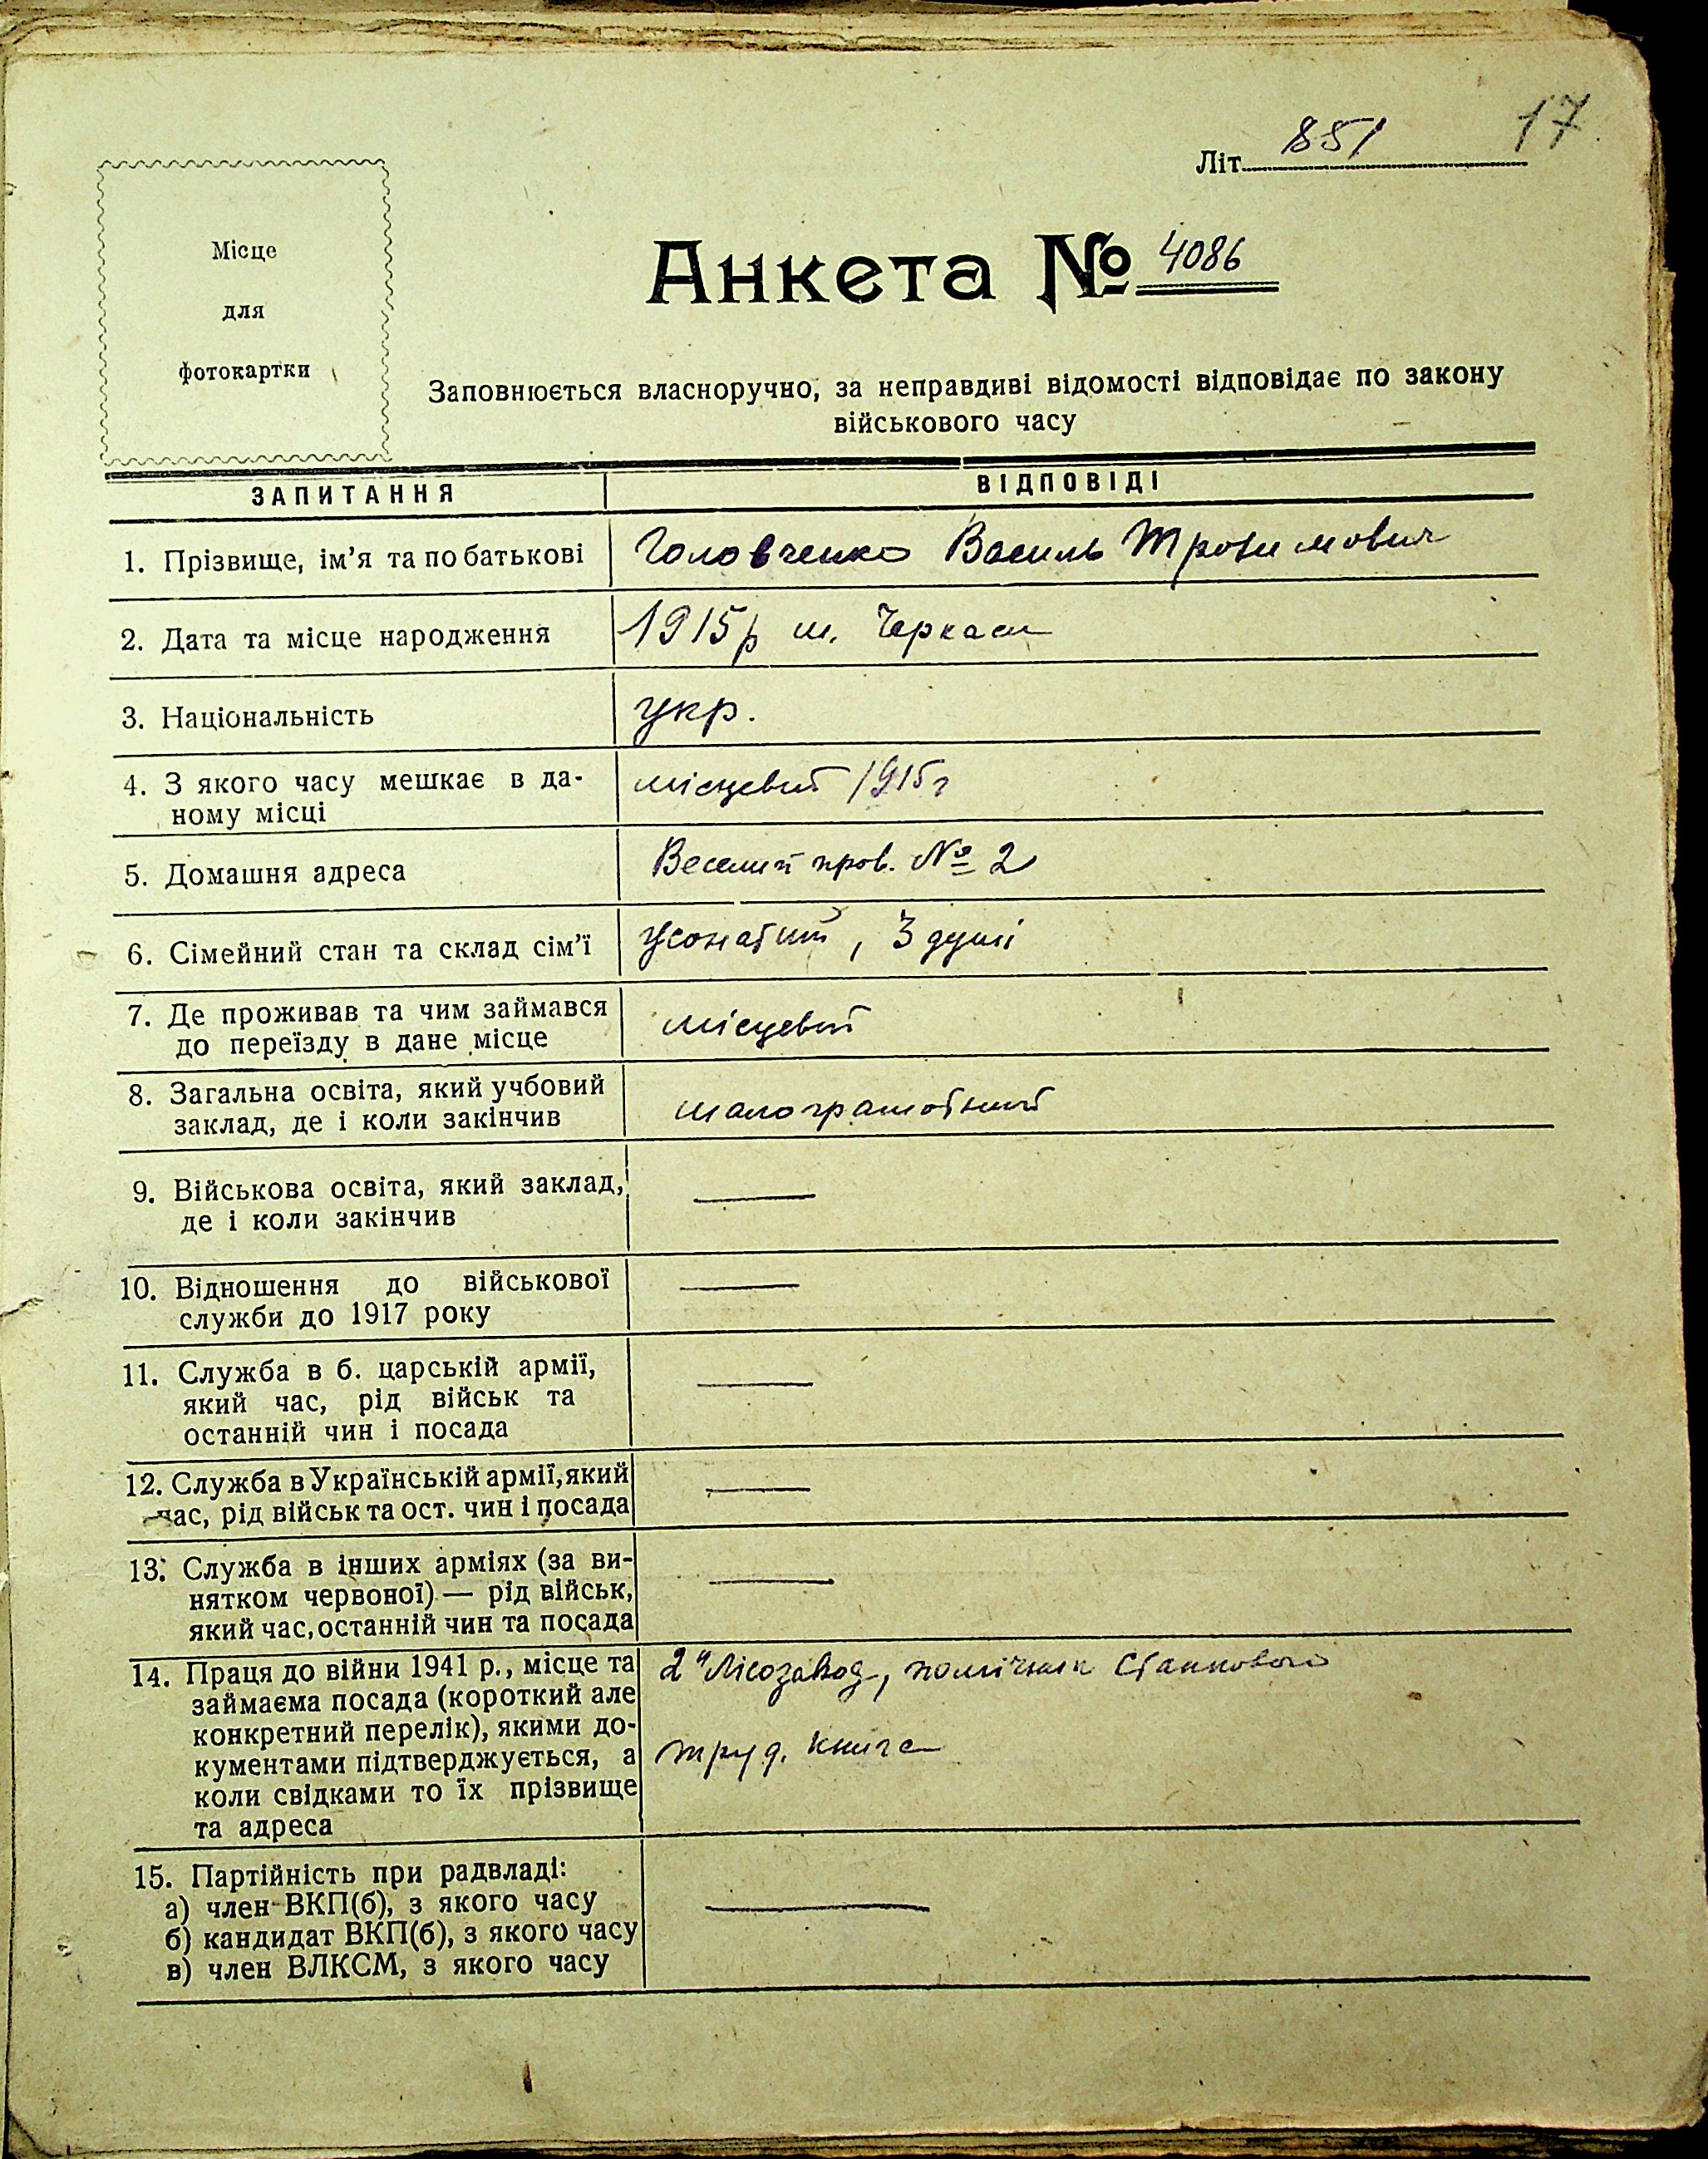 17
Літ. 851
Місце
для
фотокартки
Анкета № 4086
Заповнюється власноручно, за неправдиві відомості відповідає по закону
військового часу
ЗАПИТАННЯ ВІДПОВІДІ
1. Прізвище, ім’я та по батькові Головченко Василь Трохимович
2. Дата та місце народження 1915р м. Черкаси
3. Національність укр.
4. З якого часу мешкає в да-
ному місці місцевий 1915г
5. Домашня адреса Веселий пров. № 2
6. Сімейний стан та склад сім’ї жонатий, 3 душі
7. Де проживав та чим займався
до переїзду в дане місце місцевий
8. Загальна освіта, який учбовий
заклад, де і коли закінчив малограмотний
9. Військова освіта, який заклад,
де і коли закінчив —
10. Відношення до військової
служби до 1917 року —
11. Служба в б. царській армії,
який час, рід військ та
останній чин і посада —
12. Служба в Українській армії, який
час, рід військ та ост. чин і посада —
13. Служба в інших арміях (за ви-
нятком червоної) — рід військ,
який час, останній чин та посада —
14. Праця до війни 1941 р., місце та 2й Лісозавод, помічник Станкового
займаєма посада (короткий але
конкретний перелік), якими до-
кументами підтверджується, а труд. книга
коли свідками то їх прізвище
та адреса
15. Партійність при радвладі:
а) член ВКП(б), з якого часу —
б) кандидат ВКП(б), з якого часу
в) член ВЛКСМ, з якого часу